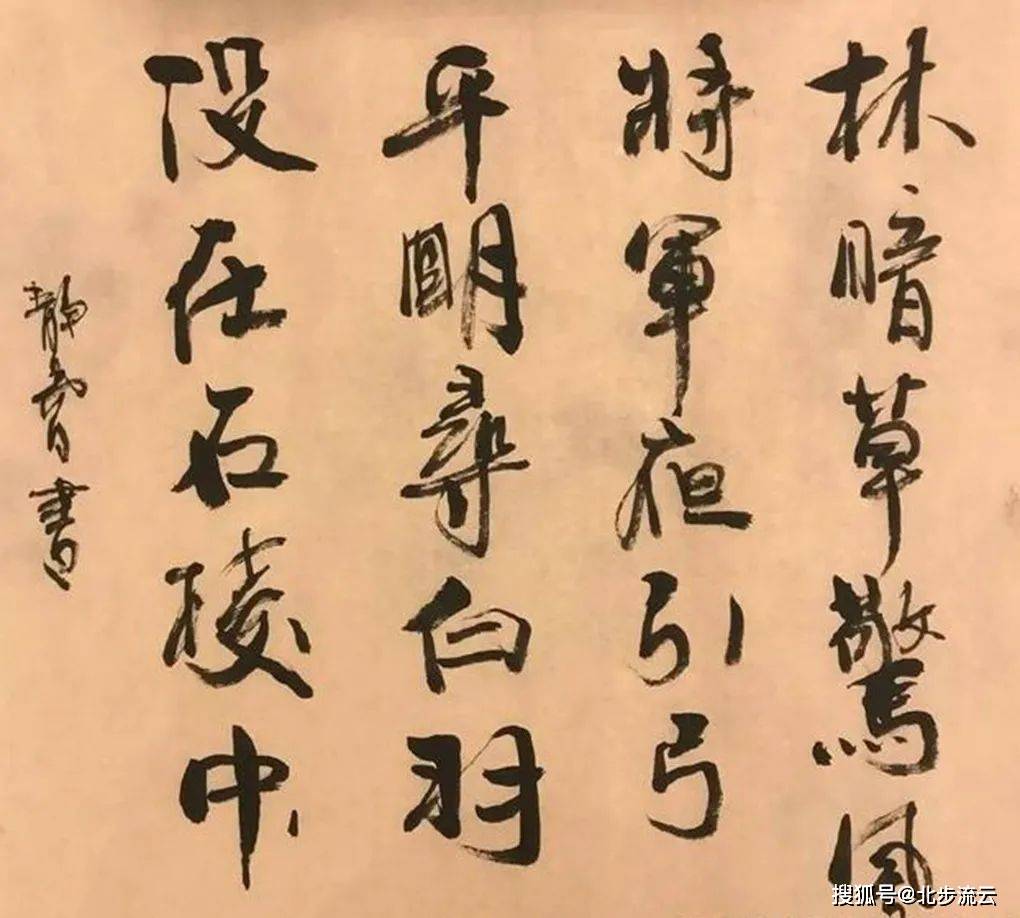 林暗草驚風
將軍夜引弓
平明尋白羽
没在石棱中
靜書
搜狐号@北步流云